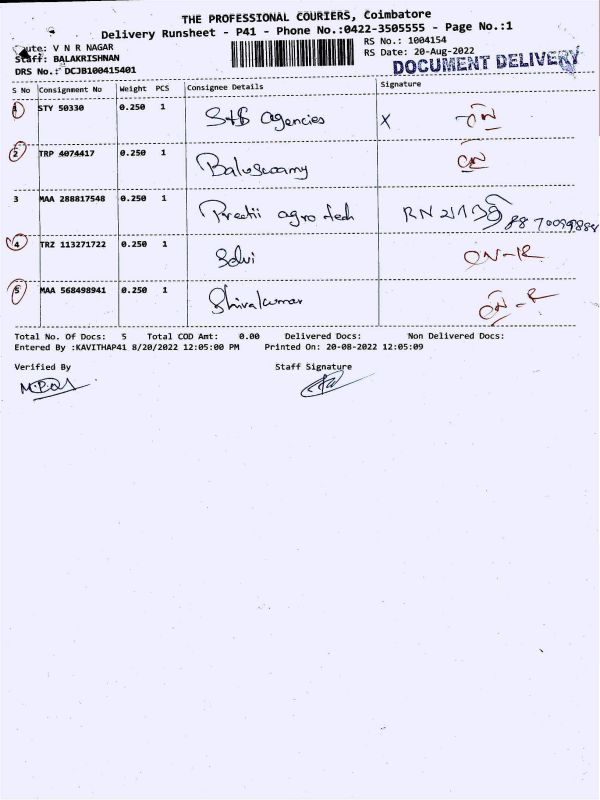 THE PROFESSIONAL COURIERS, Coimbatore
Delivery Runsheet - P41 - Phone No.:0422-3505555 - Page No.:1
Route: V N R NAGAR
Staff: BALAKRISHNAN
DRS No.: DCJB100415401
RS No.: 1004154
RS Date: 20-Aug-2022
DOCUMENT DELIVERY
S No Consignment No Weight PCS Consignee Details Signature
1 STY 50330 0.250 1 S+B Agencies X
2 TRP 4074417 0.250 1 Baluswamy
3 MAA 288817548 0.250 1 Preethi agro tech
4 TRZ 113271722 0.250 1 Selvi ON-R
5 MAA 568498941 0.250 1 Shivakumar ON-R
Total No. Of Docs: 5 Total COD Amt: 0.00 Delivered Docs: Non Delivered Docs:
Entered By :KAVITHAP41 8/20/2022 12:05:00 PM Printed On: 20-08-2022 12:05:09
Verified By Staff Signature